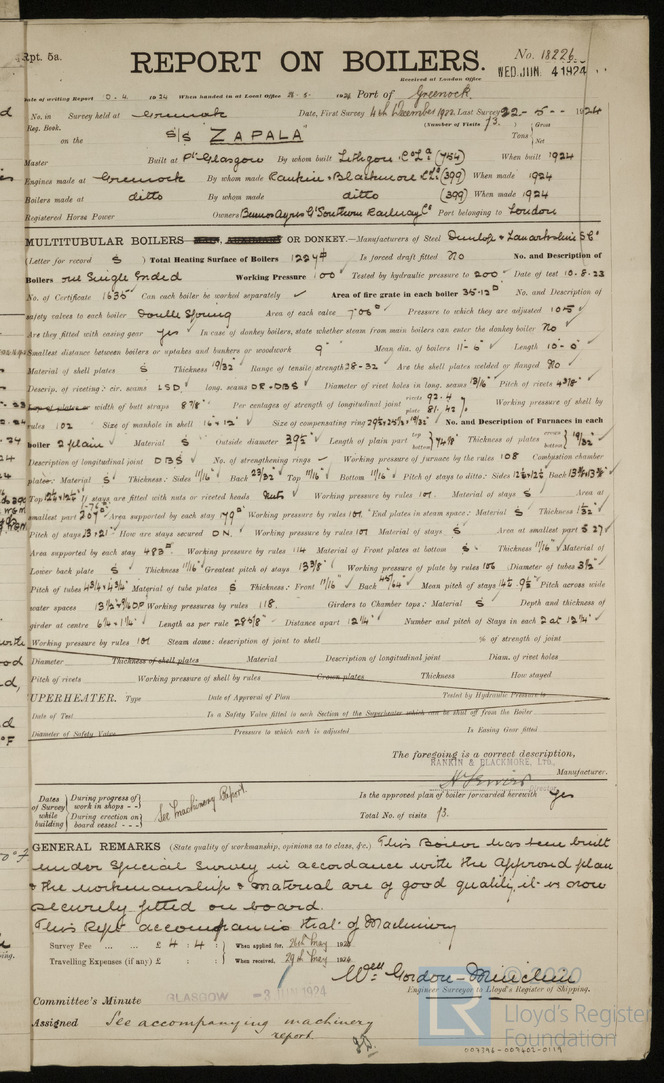 Rpt. 5a.
REPORT ON BOILERS.
No. 18226
Received at London Office WED. JUN. 4 1924
Date of writing Report 10.4. 1924 When handed in at Local Office 1924 Port of Greenock
No. in Survey held at Greenock Date, First Survey 4th December 1922 Last Survey 22-5-1924
Reg. Book. (Number of Visits 73.)
on the S/S "ZAPALA" Tons Gross Net
Master Built at Pt Glasgow By whom built Lithgow Co Ld (754) When built 1924
Engines made at Greenock By whom made Rankin & Blackmore Ld (399) When made 1924
Boilers made at ditto By whom made ditto (399) When made 1924
Registered Horse Power Owners Buenos Ayres Gt Southern Railway Co Port belonging to London
MULTITUBULAR BOILERS OR DONKEY.—Manufacturers of Steel Dunlop & Lanarkshire S Co
(Letter for record S) Total Heating Surface of Boilers 1224 Is forced draft fitted No No. and Description of
Boilers one Single Ended Working Pressure 100 Tested by hydraulic pressure to 200 Date of test 10.8.23
No. of Certificate 1635 Can each boiler be worked separately Area of fire grate in each boiler 35.12 No. and Description of
safety valves to each boiler Double Spring Area of each valve 7.06 Pressure to which they are adjusted 105
Are they fitted with easing gear yes In case of donkey boilers, state whether steam from main boilers can enter the donkey boiler No
Smallest distance between boilers or uptakes and bunkers or woodwork 9" Mean dia. of boilers 11-6 Length 10-0
Material of shell plates S Thickness 19/32 Range of tensile strength 28-32 Are the shell plates welded or flanged No
Descrip. of riveting: cir. seams LSD long. seams DR.DBS Diameter of rivet holes in long. seams 13/16 Pitch of rivets 4 3/8
width of butt straps 8 7/8 Per centages of strength of longitudinal joint rivets 92.4 plate 81.42 Working pressure of shell by
rules 102 Size of manhole in shell 16 x 12 Size of compensating ring No. and Description of Furnaces in each
boiler 2 plain Material S Outside diameter 39 1/2 Length of plain part top bottom 74 1/8 Thickness of plates crown bottom 19/32
Description of longitudinal joint DBS No. of strengthening rings Working pressure of furnace by the rules 108 Combustion chamber
plates: Material S Thickness: Sides 11/16 Back 23/32 Top 11/16 Bottom 11/16 Pitch of stays to ditto: Sides Back
Top If stays are fitted with nuts or riveted heads Nuts Working pressure by rules 101 Material of stays S Area at
smallest part Area supported by each stay 179 Working pressure by rules 101 End plates in steam space: Material S Thickness
Pitch of stays 13 x 21 How are stays secured DN. Working pressure by rules 107 Material of stays S Area at smallest part
Area supported by each stay 483 Working pressure by rules 114 Material of Front plates at bottom S Thickness 11/16 Material of
Lower back plate S Thickness 11/16 Greatest pitch of stays 13 3/8 Working pressure of plate by rules 106 Diameter of tubes 3 1/2
Pitch of tubes 4 3/4 x 4 3/4 Material of tube plates S Thickness: Front 11/16 Back Mean pitch of stays Pitch across wide
water spaces Working pressures by rules 118. Girders to Chamber tops: Material S Depth and thickness of
girder at centre Length as per rule 28 5/8 Distance apart 12 1/4 Number and pitch of Stays in each 2 at 12 1/4
Working pressure by rules 101 Steam dome: description of joint to shell % of strength of joint
Diameter Thickness of shell plates Material Description of longitudinal joint Diam. of rivet holes
Pitch of rivets Working pressure of shell by rules Crown plates Thickness How stayed
UPERHEATER. Type Date of Approval of Plan Tested by Hydraulic Pressure to
Date of Test Is a Safety Valve fitted to each Section of the Superheater which can be shut off from the Boiler
Diameter of Safety Valve Pressure to which each is adjusted Is Easing Gear fitted
The foregoing is a correct description,
RANKIN & BLACKMORE, LTD.,
Manufacturer.
Director
Dates of Survey while building
During progress of work in shops - -
During erection on board vessel - - -
See Machinery Report.
Is the approved plan of boiler forwarded herewith yes
Total No. of visits 73.
GENERAL REMARKS (State quality of workmanship, opinions as to class, &c.) This Boiler has been built
under Special Survey in accordance with the approved plan
& the workmanship & material are of good quality, it is now
securely fitted on board.
This Rept accompanies that of Machinery
Survey Fee ... ... £ 4 : 4 : When applied for, 26th May 1924
Travelling Expenses (if any) £ : : When received, 29th May 1924
Wm Gordon-Minchin
Engineer Surveyor to Lloyd's Register of Shipping.
© 2020
Lloyd's Register
Foundation
LR
Committee's Minute GLASGOW -3 JUN 1924
Assigned See accompanying machinery
report.
007396-007402-0119